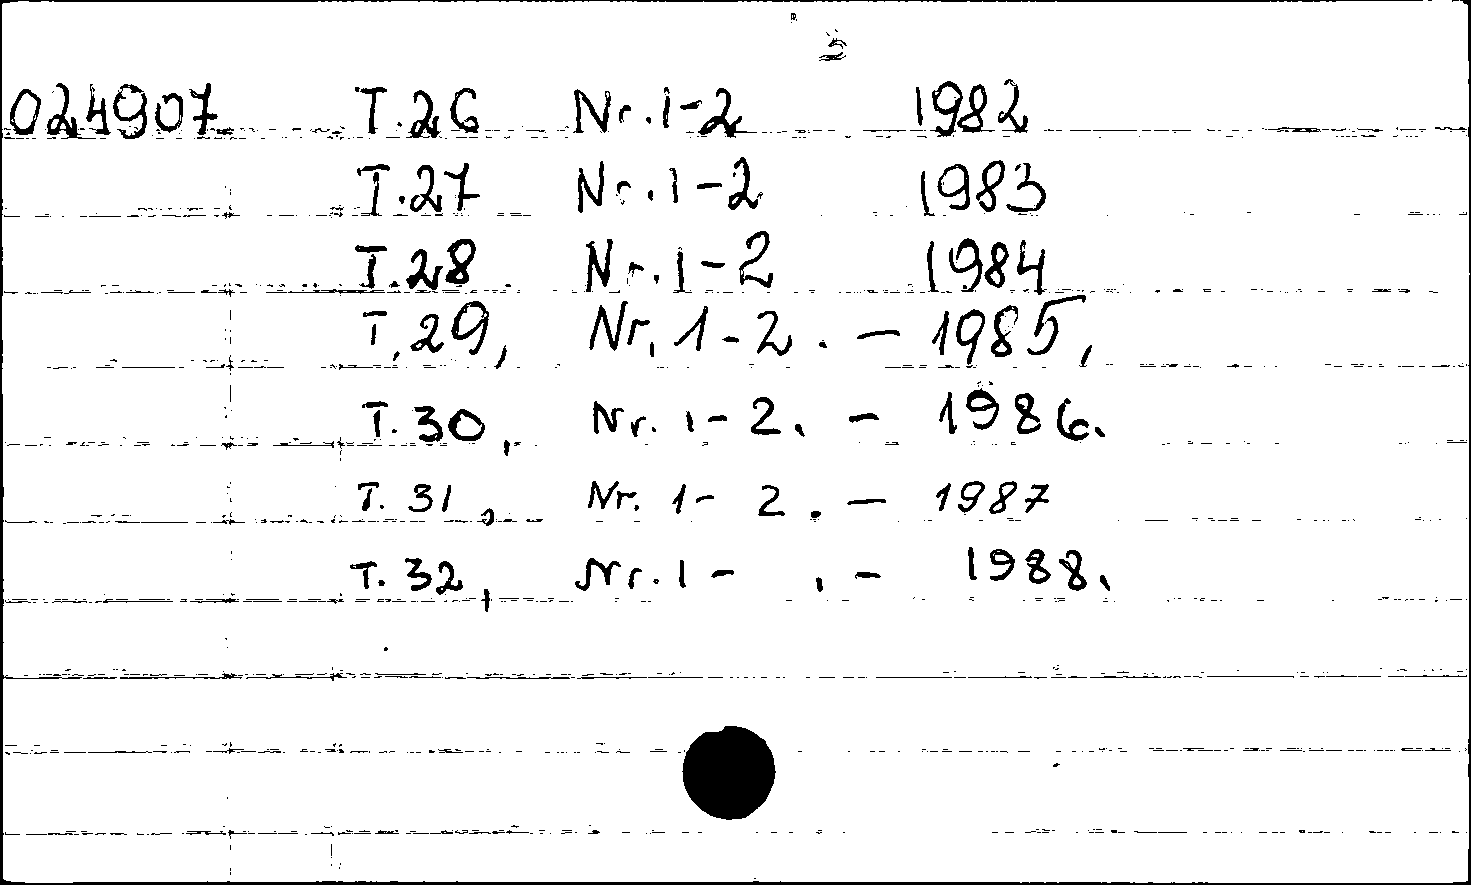 024907 T.26 Nr.1-2 1982
T.27 Nr.1-2 1983
T.28 Nr.1-2 1984
T.29, Nr. 1-2. — 1985,
T.30, Nr. 1-2. - 1986.
T. 31, Nr. 1- 2. — 1987
T. 32, Nr. 1 - . - 1988.